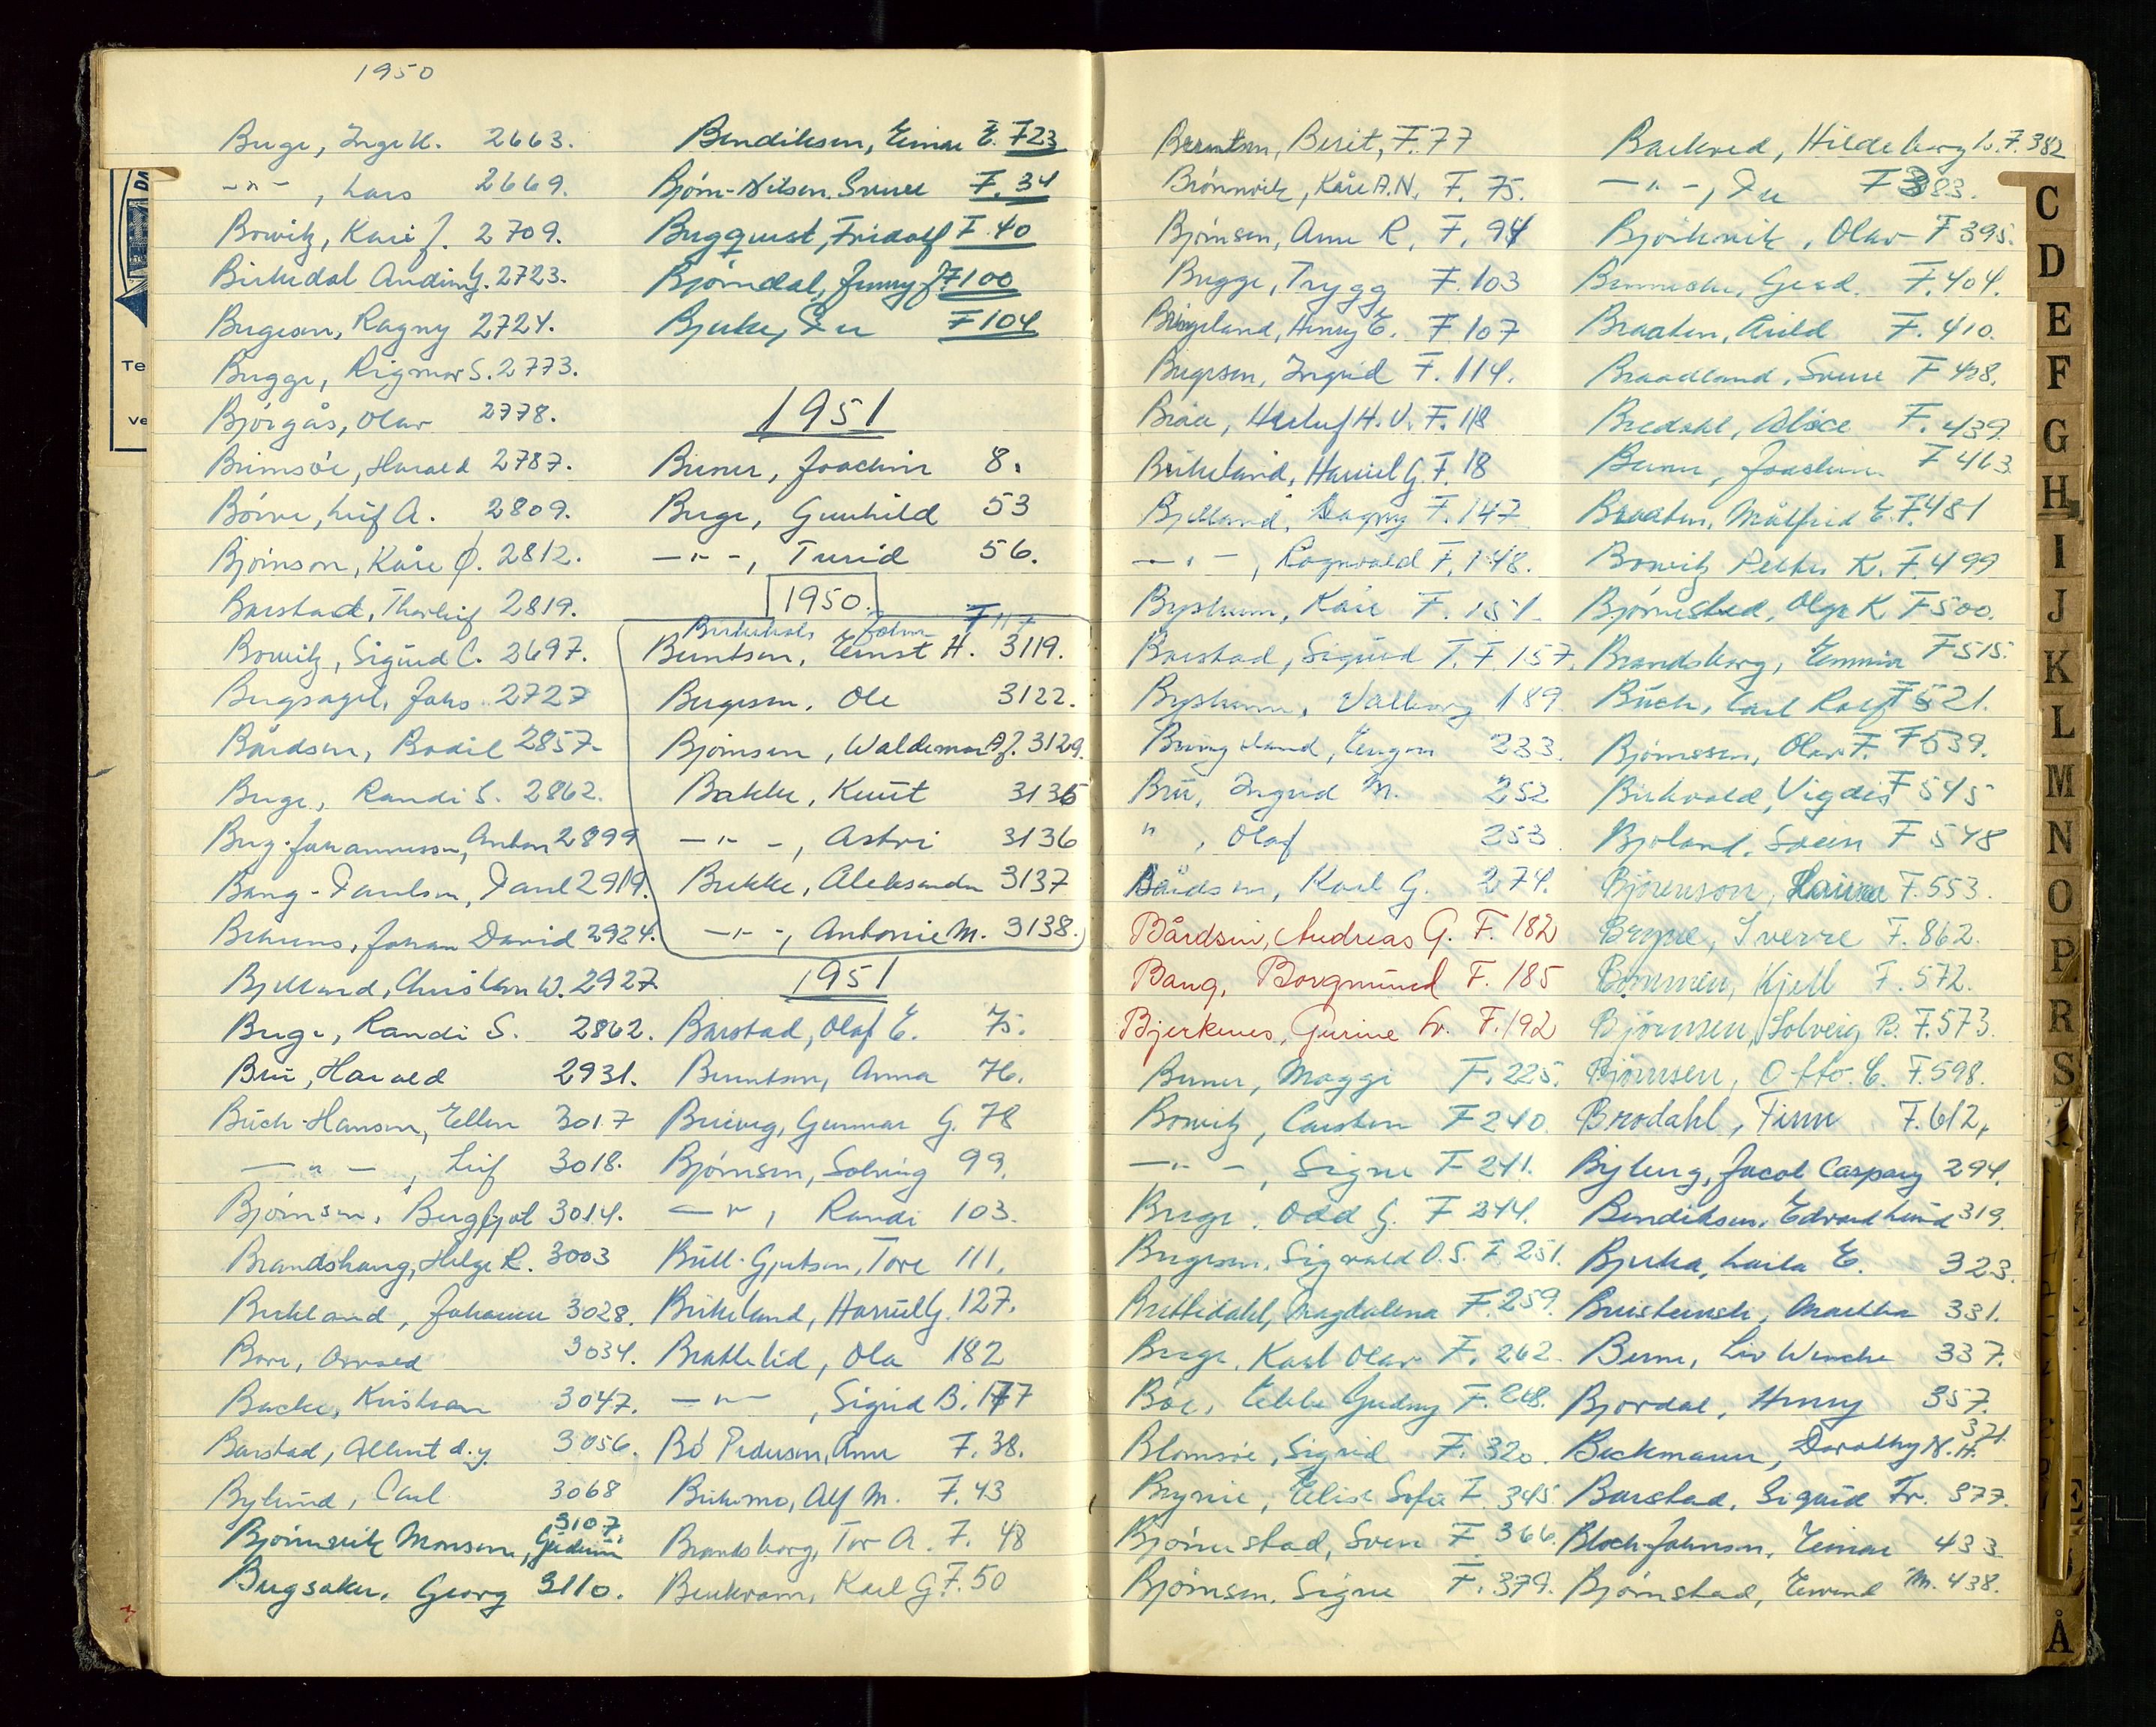 1950
Berge, Inge K. 2663.
-"- , Lars 2669.
Bowitz, Kari J. 2709.
Birkedal Anding. 2723.
Bergesen, Ragny 2724.
Bugge, Rigmor S. 2773.
Bjørgås, Olav 2778.
Brimsøe, Harald 2787.
Børve, Leif A. 2809.
Bjørnson, Kåre Ø. 2812.
Barstad, Thorleif 2819.
Bowitz, Sigurd C. 2697.
Bergsagel, Johs. 2727
Bårdsen, Bodil 2857.
Berge, Randi S. 2862.
Berg-Johannessen, Anton 2899
Bang-Paulsen, Paul 2919.
Behrens, Johan David 2924.
Bjelland, Christian W. 2927.
Berge, Randi S. 2862.
Bru, Harald 2931.
Buch-Hansen, Ellen 3017
-"- , Leif 3018.
Bjørnsen, Bergljot 3014.
Brandshaug, Helge R. 3003
Birkeland, Johanne 3028.
Bore, Osvald 3034.
Backe, Kristian 3047.
Barstad, Albert d.y. 3056.
Bylund, Carl 3068
3107.
Bjørnevik Monsen, Gudrun
Bergsaker, Georg 3110.
Bendiksen, Einar E. F 23
Bjørn-Nilsen, Sverre F. 34
Bergquist, Fridolf F. 40
Bjørndal, Jenny J. F 100
Bjerke, Per F 104
1951
Berner, Joachim 8.
Berge, Gunhild 53
-"-, Turid 56.
1950.
John F
Berntsen, Ernst H. 3119.
Bergesen, Ole 3122.
Bjørnsen, Waldemar A.J. 3129.
Bakke, Knut 3135
-"-, Astri 3136
Bekke, Aleksander 3137
-"-, Antonie M. 3138.
1951
Barstad, Olaf E. 75.
Berntsen, Anna 76.
Breivig, Gunnar G. 78
Bjørnsen, Solveig 99.
-"-, Randi 103.
Bull-Gjertsen, Tore 111.
Birkeland, Harriet G. 127.
Brattelid, Ola 182
-"-, Sigrid B. 177
Bø Pedersen, Anne F. 38.
Birkemo, Alf M. F. 43
Brandsborg, Tor A. F. 48
Benkvam, Karl G. F. 50
Berntsen, Berit, F. 77
Brønnvik, Kåre A.N. F. 75.
Bjørnsen, Anne R. F. 94
Bugge, Trygg F. 103
Bringeland, Henry E. F. 107
Bergesen, Ingrid F. 114.
Braa, Herluf H. V. F. 118
Birkeland, Harriet G. F. 18
Bjelland, Dagny F. 147
-"-, Ragnvald F. 148.
Byskum, Kåre F. 151.
Barstad, Sigurd T. F. 157.
Byskum, Valborg 189
Bringeland, Eugen 233.
Bru, Ingrid M. 252
", Olaf 253
Bårdsen, Karl G. 274.
Bårdsen, Andreas G. F. 182
Bang, Borgmund F. 185
Bjerknes, Gurine Lv. F. 192
Berner, Maggi F. 225.
Bowitz, Carsten F 240.
-"-, Signe F 241.
Berge, Odd G. F 244.
Bergesen, Sigvald O.S. F. 251.
Brettedahl, Magdalena F. 259.
Berge, Karl Olav F. 262.
Bøe, Ebba Gudny F. 268.
Blomsøe, Sigrid F. 320.
Brynie, Elise Sofie F. 345.
Bjørnestad, Sven F 366.
Bjørnsen, Signe F. 379.
Barkved, Hildeborg L. F. 382
-"-, Per F 383.
Bjørkevik, Olav F 395.
Bennecke, Gerd F. 404.
Braaten, Arild F. 410.
Braadland, Sverre F 428.
Bredahl, Alice F. 439.
Berner, Joachim F 463.
Braaten, Målfrid E. F. 481
Bowitz Petter K. F. 499
Bjørnestad, Olga K. F 500.
Brandsborg, Emma F 515.
Buch, Carl Rolf F 521.
Bjørnssen, Olav F. F 539.
Birkvold, Vigdis F 545
Bjoland, Svein F 548
Bjørenson, F. 553.
Bryne, Sverre F. 862.
Bommen, Kjell F. 572.
Bjørnsen, Solveig B. F. 573.
Bjørnsen, Otto. E. F. 598.
Brodahl, Finn F. 612.
Byberg, Jacob Caspary 294.
Bendiksen, Edvard Lund 319.
Bjerka, Laila E. 323.
Breistensk, Martha 331.
Berne, Liv Wenche 337.
Bjordal, Henry 357.
371.
Beckmann, Dorothy N. H.
Barstad, Sigurd Fr. 377.
Bloch-Johnsen, Einar 433
Bjørnstad, Eivind M. 438.
C
D
E
F
G
H
I
J
K
L
M
N
O
P
R
S
Å
DA
Te
ve